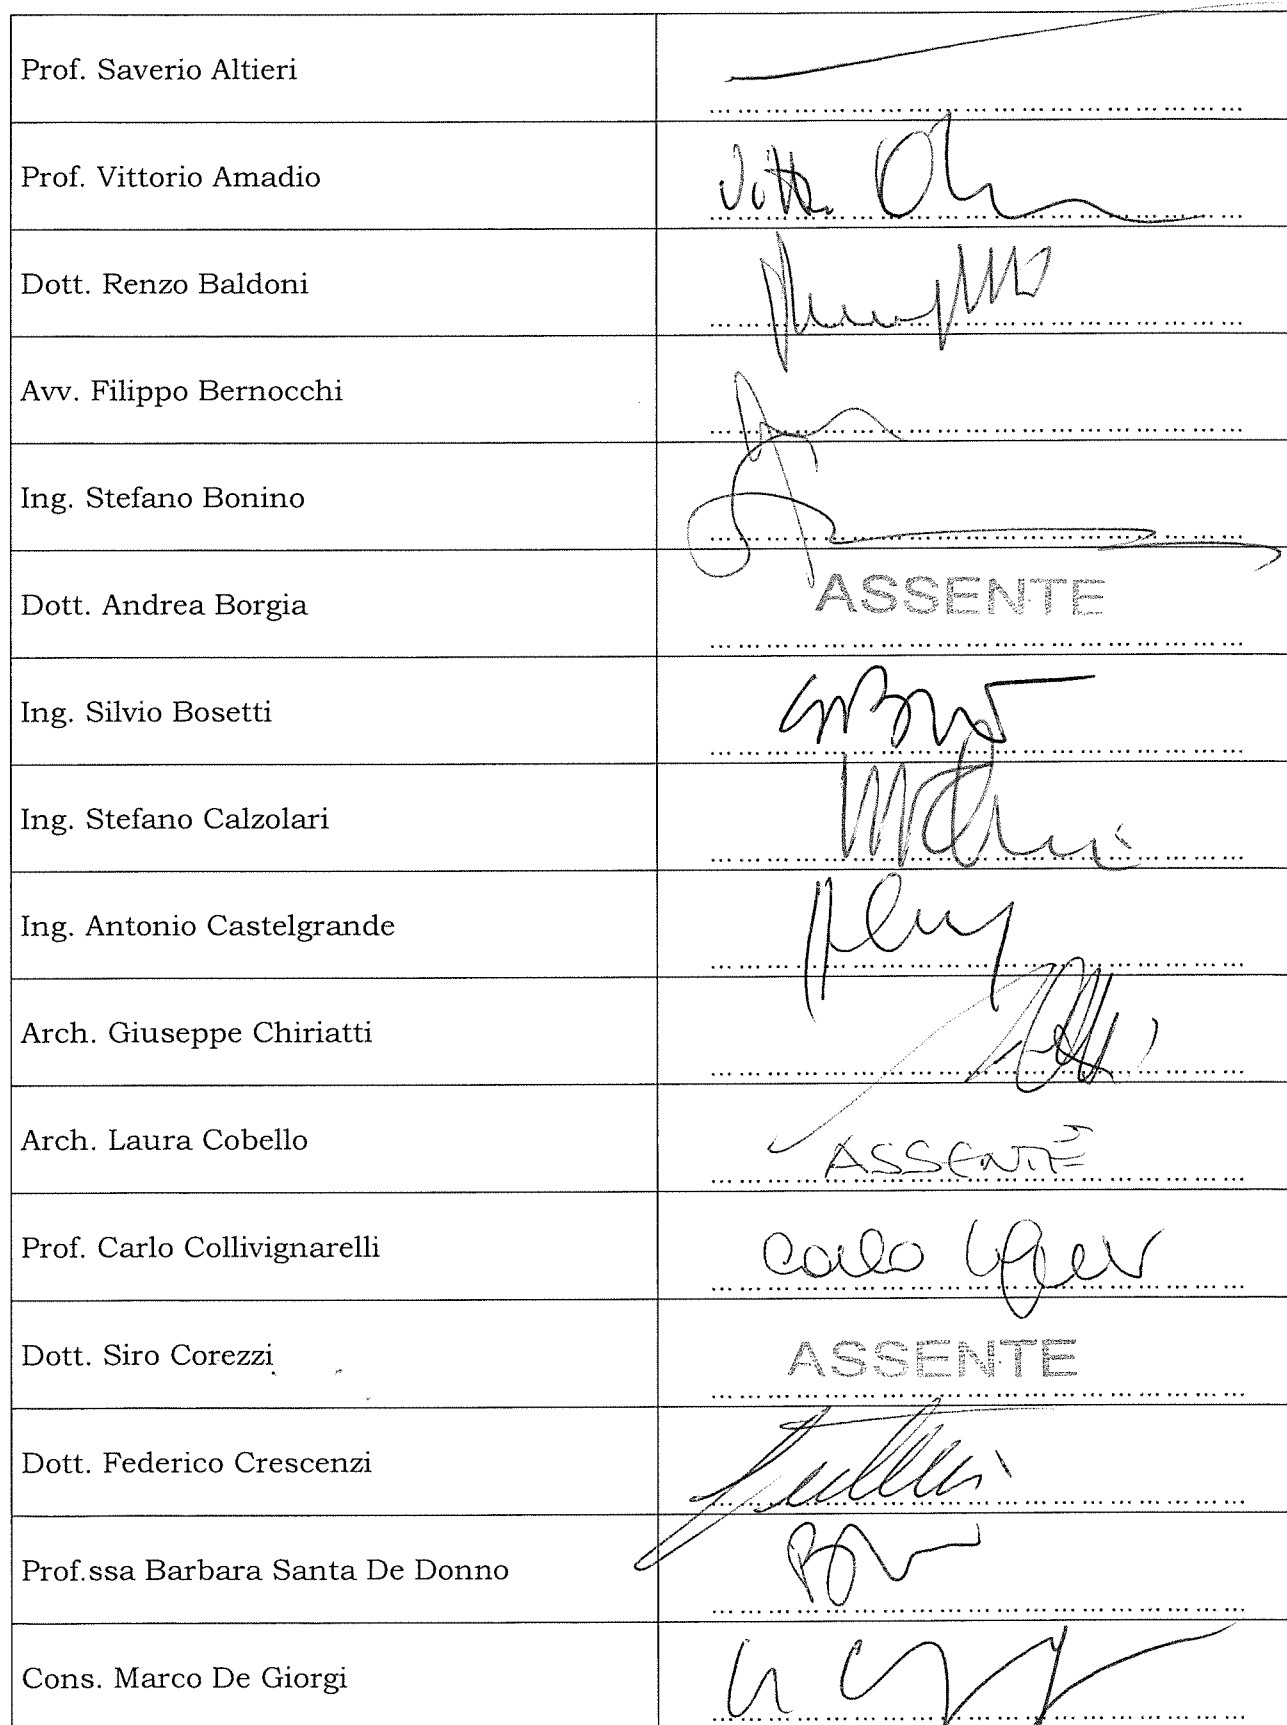 Prof. Saverio Altieri
Prof. Vittorio Amadio
Dott. Renzo Baldoni
Avv. Filippo Bernocchi
Ing. Stefano Bonino
Dott. Andrea Borgia ASSENTE
Ing. Silvio Bosetti
Ing. Stefano Calzolari
Ing. Antonio Castelgrande
Arch. Giuseppe Chiriatti
Arch. Laura Cobello ASSENTE
Prof. Carlo Collivignarelli Carlo
Dott. Siro Corezzi ASSENTE
Dott. Federico Crescenzi
Prof.ssa Barbara Santa De Donno
Cons. Marco De Giorgi